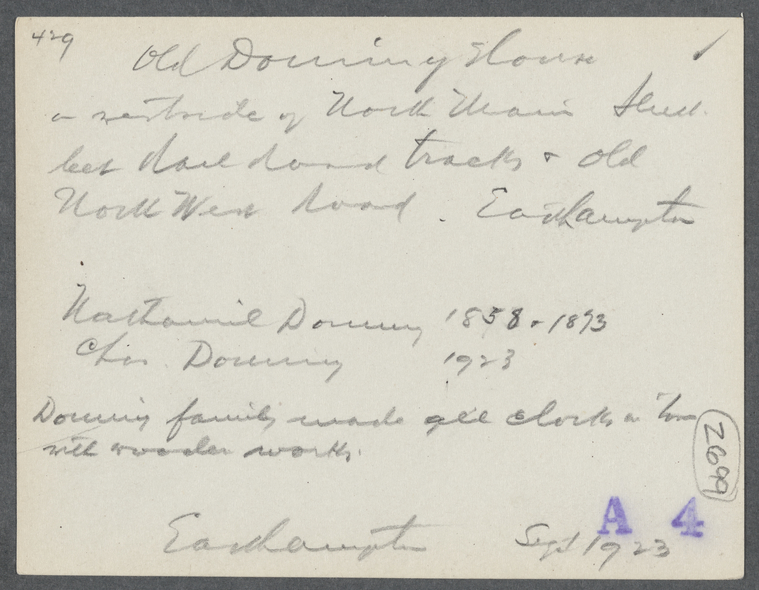 429
Old Dominy House
on west side of North Main Street
bet Rail Road tracks & Old
North West Road. Easthampton
Nathaniel Dominy 1858 - 1893
Chas Dominy 1923
Dominy family made all clocks in Town
with wooden works.
2699
A 4
Easthampton Sept 1923